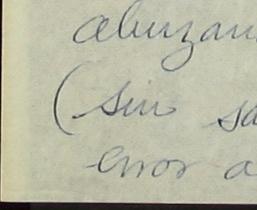 abuzan
(sin sa
error a